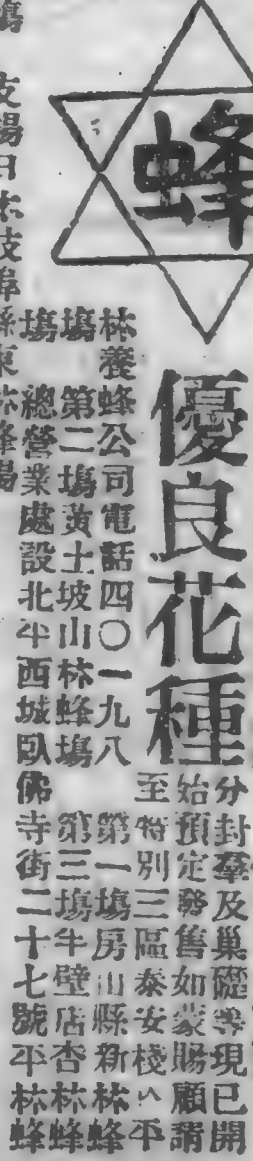 蜂
優良花種
分封羣及巢礎等現已開
始預定發售如蒙賜顧請
至特別三區泰安棧八平
林養蜂公司電話四〇一九八 第一塲房山縣新林蜂
塲 第二塲黄土坡山林蜂塲 第三塲牛壁店杏林蜂
塲 總營業處設北平西城臥佛寺街二十七號平林蜂
塲 支塲日本岐阜縣東林蜂塲